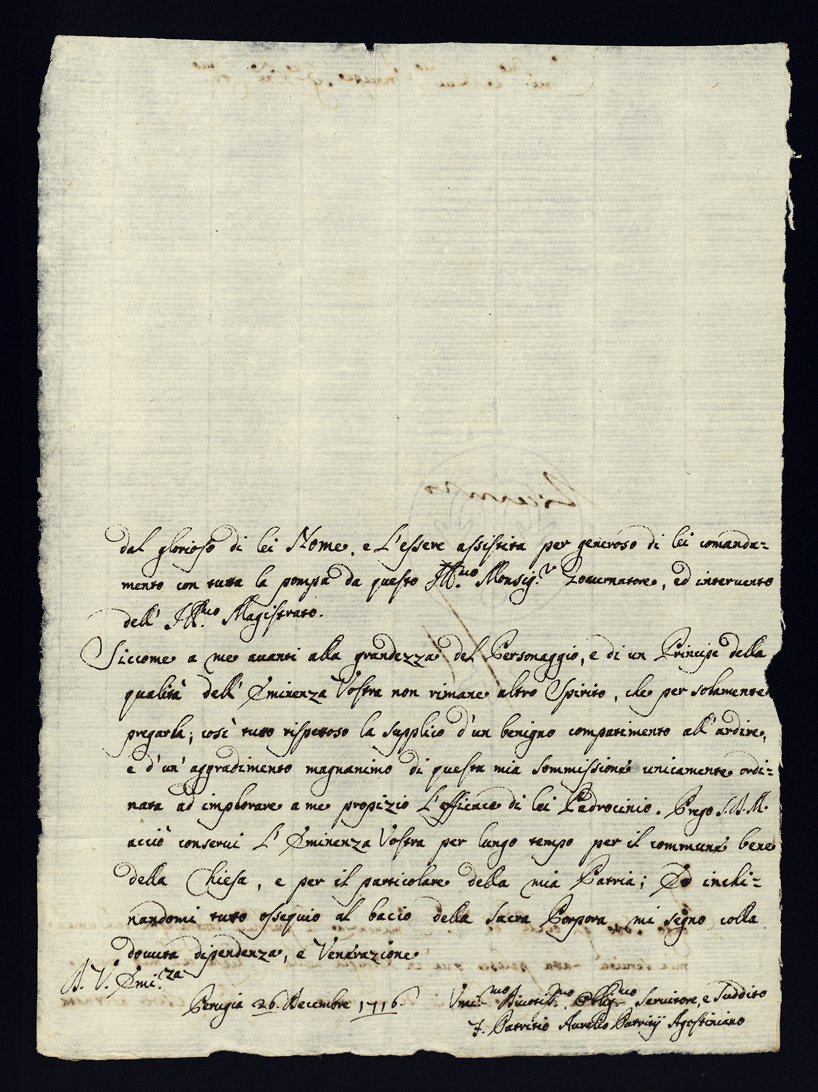 dal glorioso di lei Nome, e l'essere assistita per generoso di lei comanda=
mento con tutta la pompa da questo Ill.mo Monsig.r Governatore, ed intervento
dell' Ill.mo Magistrato.
Siccome a me avanti alla grandezza del Personaggio, e di un Principe della
qualità dell' Eminenza Vostra non rimane altro Spirito, che per solamente
pregarla; così tutto rispettoso la supplico d'un benigno compatimento all' ardire,
e d'un' aggradimento magnanimo di questa mia sommissione unicamente ordi=
nata ad implorare a me propizio l'efficace di lei Padrocinio. Prego S.D.M.
acciò conservi l' Eminenza Vostra per lungo tempo per il commune bene
della Chiesa, e per il particolare della mia Patria; Ed inchi=
nandomi tutto ossequio al bacio della Sacra Porpora mi segno colla
dovuta dipendenza, e Venerazione
D. V. Emi.za
Perugia 26. Decembre 1716. Umil.mo Divotis.mo Oblig.mo Servitore, e Suddito
F. Patritio Aurelio Patritij Agostiniano